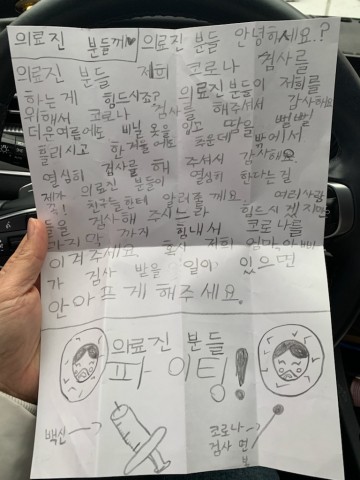 의료진 분들께♥
의료진 분들 안녕하세요.?
의료진 분들 저희 코로나 검사를
하는게 힘드시죠? 의료진 분들이 저희를
위해서 코로나 검사를 해주셔서 감사해요
더운여름에도 비닐 옷을 입고 땀을 뻘뻘
흘리시고 한겨울에도 추운데 밖에서
열심히 검사를 해 주셔서 감사해요.
제가 의료진 분들이 열심히 한다는 걸
꼭! 친구들한테 알려줄께요. 여러사람
들을 검사해 주시느라 힘드시겠지만
끝까지 힘내서 코로나를
이겨주세요. 혹시 저희 엄마 아빠
가 검사 받을 일이 있으면
안아프게 해주세요.
의료진 분들
파이팅!
백신
코로나
검사 면
봉